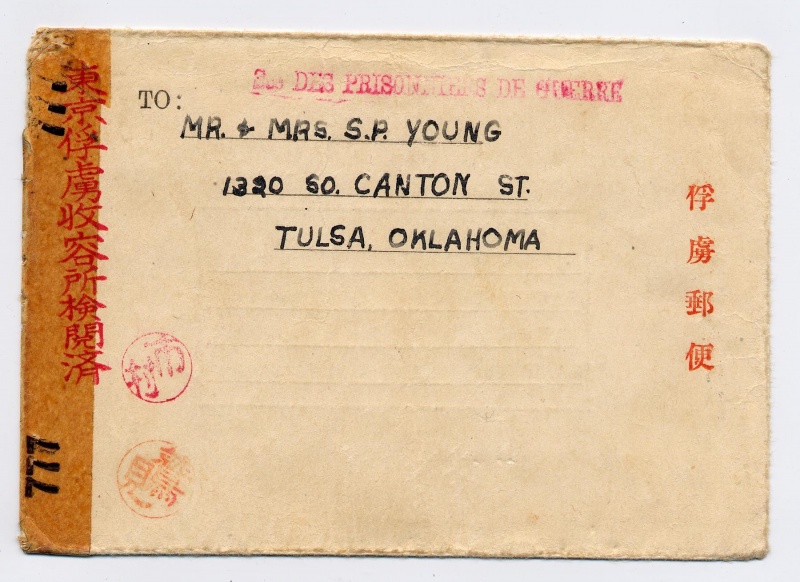 東京俘虜収容所検閲済
DES PRISONNIERS DE GUERRE
TO:
MR. & MRS. S.P. YOUNG
1320 SO. CANTON ST.
TULSA, OKLAHOMA
俘虜郵便
777